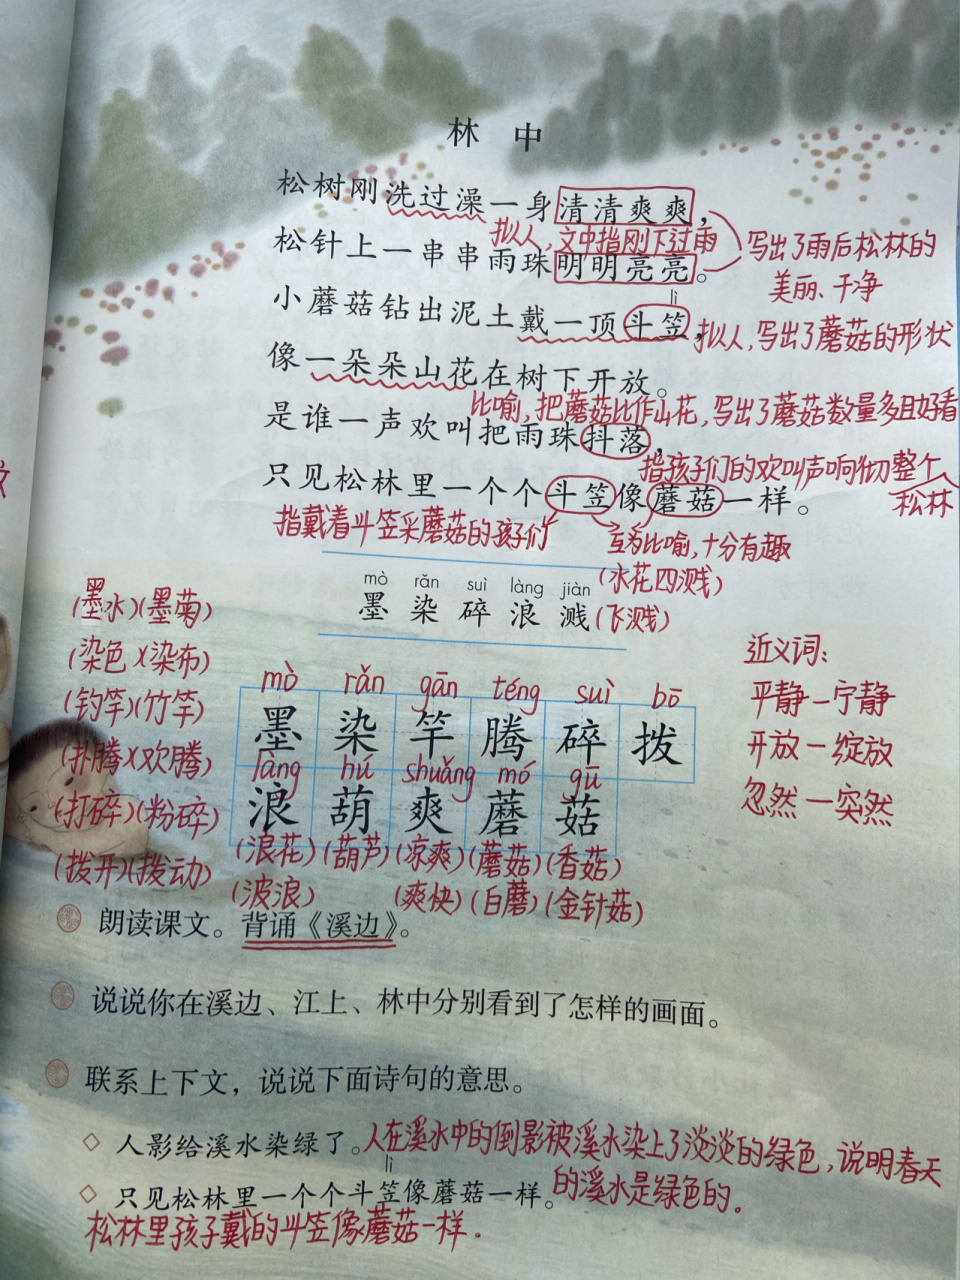 林 中
松树刚洗过澡一身清清爽爽，
拟人，文中指刚下过雨
松针上一串串雨珠明明亮亮。
写出了雨后松林的
美丽、干净
lì
小蘑菇钻出泥土戴一顶斗笠，
拟人，写出了蘑菇的形状
像一朵朵山花在树下开放。
比喻，把蘑菇比作山花，写出了蘑菇数量多且好看
是谁一声欢叫把雨珠抖落，
指孩子们的欢叫声响彻整个
松林
只见松林里一个个斗笠像蘑菇一样。
指戴着斗笠采蘑菇的孩子们
互为比喻，十分有趣
mò rǎn suì làng jiàn
墨 染 碎 浪 溅
(水花四溅)
(飞溅)
(墨水)(墨菊)
(染色)(染布)
(钓竿)(竹竿)
(扑腾)(欢腾)
(打碎)(粉碎)
(拨开)(拨动)
mò rǎn gān téng suì bō
墨 染 竿 腾 碎 拨
làng hú shuǎng mó gū
浪 葫 爽 蘑 菇
(浪花)(葫芦)(凉爽)(蘑菇)(香菇)
(波浪) (爽快)(白蘑)(金针菇)
近义词：
平静—宁静
开放—绽放
忽然—突然
朗读课文。背诵《溪边》。
说说你在溪边、江上、林中分别看到了怎样的画面。
联系上下文，说说下面诗句的意思。
◇ 人影给溪水染绿了。
人在溪水中的倒影被溪水染上了淡淡的绿色，说明春天
的溪水是绿色的.
lì
◇ 只见松林里一个个斗笠像蘑菇一样。
松林里孩子戴的斗笠像蘑菇一样.